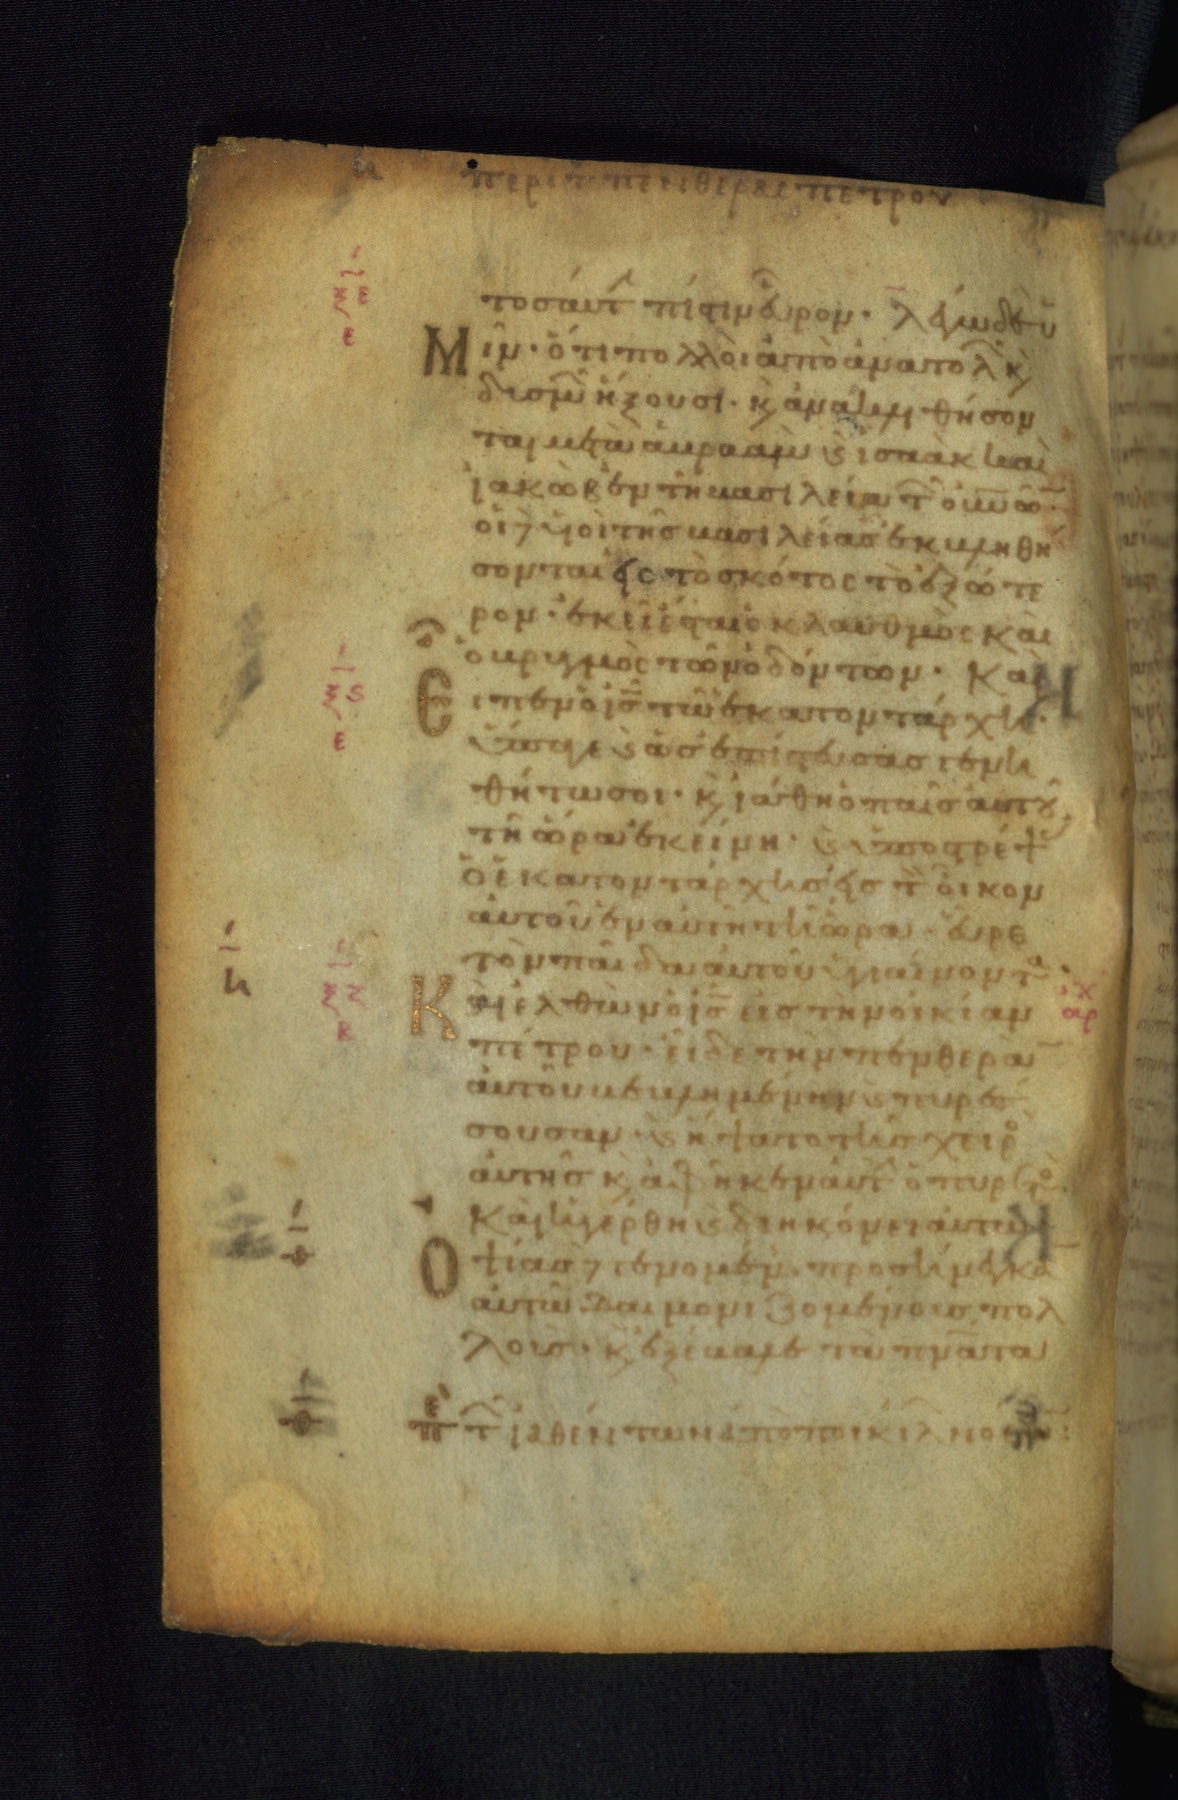 η περὶ τ πενθερᾶς πέτρου
τοσαύτ πίστιν εὗρον· λέγω δὲ ὑ
Μῖν· ὅτι πολλοὶ ἀπὸ ἀνατολ κ
δυσμ ἥξουσι· κ ἀνακλιθήσον
ται μετὰ ἀβραὰμ κ ἰσαὰκ καὶ
ἰακὼβ ἐν τῆ βασιλεία τ οὐνῶ·
οἱ δὲ υἱοὶ τῆς βασιλείας ἐκβληθή
σονται εἰς τὸ σκότος τὸ ἐξώτε
ρον· ἐκεῖ ἔσται ὁ κλαυθμὸς καὶ
ὁ βρυγμὸς τῶν ὀδόντων· Καὶ
Εἶπεν ὁ ις τῶ ἑκατοντάρχη·
ὕπαγε κ ὡς ἐπίστευσας γενη
θήτω σοι· κ ἰάθη ὁ παῖς αὐτοῦ
τῆ ὥρα ἐκείνη· κ ὑποστρέψ
ὁ ἑκατοντάρχης εἰς τ οἶκον
αὐτοῦ ἐν αὐτῆ τῆ ὥρα· εὗρε
τὸν παῖδα αὐτοῦ ὑγιαίνοντα·
Καὶ ἐλθὼν ὁ ις εἰς τὴν οἰκίαν
πέτρου· εἶδε τὴν πενθερὰ
αὐτοῦ βεβλημένην κ πυρέσ
σουσαν· κ ἥψατο τῆς χειρ
αὐτῆς κ ἀφῆκεν αὐτ ὁ πυρετός
Καὶ ἠγέρθη κ διηκόνει αὐτω
Ὀψίας δὲ γενομέν· προσήνεγκα
αὐτῶ δαιμονιζομένους πολ
λούς· κ ἐξέβαλε τὰ πνατα
τ ἰαθέντων ἀπὸ ποικίλ νόσων: